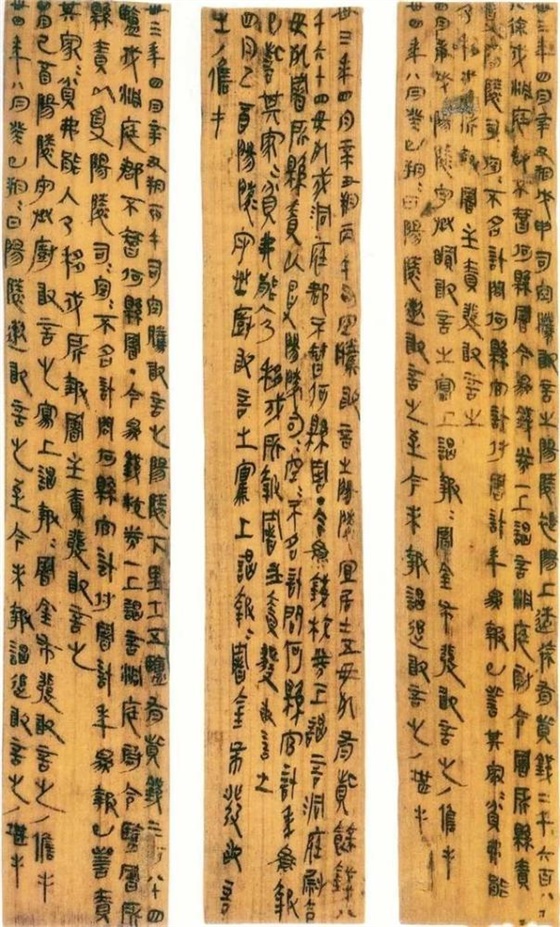 卅三年四月辛丑朔戊申司空騰敢言之陽陵褆陽上造徐有貲錢二千六百八十
八徐戍洞庭郡不智何縣署今為錢校券一上謁言洞庭尉令署所縣責
以受陽陵司空不名計問何縣官計付署計年為報已訾其家=貧弗能
入乃移戍所報署主責發敢言之
四月庚戌陽陵守丞瞫敢言之寫上謁報=署金布發敢言之/儋手
卅四年八月癸巳朔=日陽陵遬敢言之至今未報謁追敢言之/堪手
卅三年四月辛丑朔丙午司空騰敢言之陽陵宜居士五毋死有貲餘錢八
千六十四毋死戍洞庭郡不智何縣署·今為錢校券一上謁言洞庭尉令
毋死署所縣責以受陽陵司=空=不名計問何縣官計年為報
已訾其家=貧弗能入乃移戍所報署主責發敢言之
四月己酉陽陵守丞廚敢言之寫上謁報=署金布發敢言
之/儋手
卅三年四月辛丑朔丙午司空騰敢言之陽陵下里士五鹽有貲錢三百八十四
鹽戍洞庭郡不智何縣署·今為錢校券一上謁言洞庭尉令鹽署所
縣責以受陽陵司=空=不名計問何縣官計付署計年為報已訾責
其家=貧弗能入乃移戍所報署主責發敢言之
四月己酉陽陵守丞廚敢言之寫上謁報=署金布發敢言之/儋手
卅四年八月癸巳朔=日陽陵遬敢言之至今未報謁追敢言之/堪手